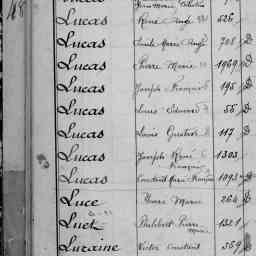 48
Jean Marie
Lucas René Ange 526
Lucas Emile Marie Ange 708 D
Lucas Pierre Marie 1969 D
Lucas Joseph François 195 D
Lucas Louis Edouard 55 D
Lucas Louis Gustave 117 D
Lucas Joseph René François 1303
Lucas Constant Marie François 1093 D
Luce Pierre Marie 264 D
Luet Philibert Pierre Marie 1321
Luzaine Victor Constant 559 D